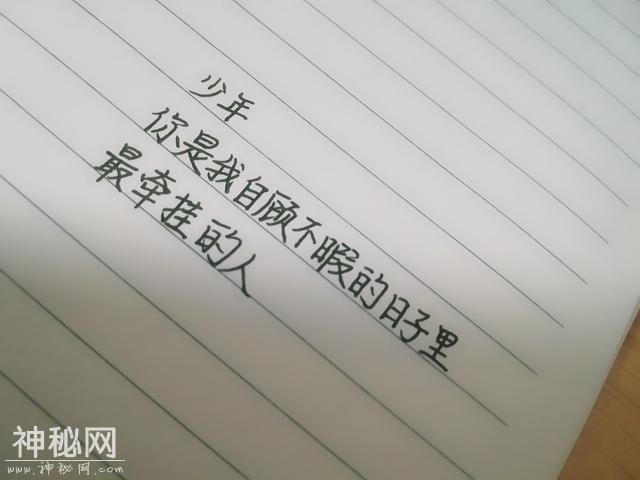 少年
你是我自顾不暇的日子里
最牵挂的人
神秘网
www.神秘网.com